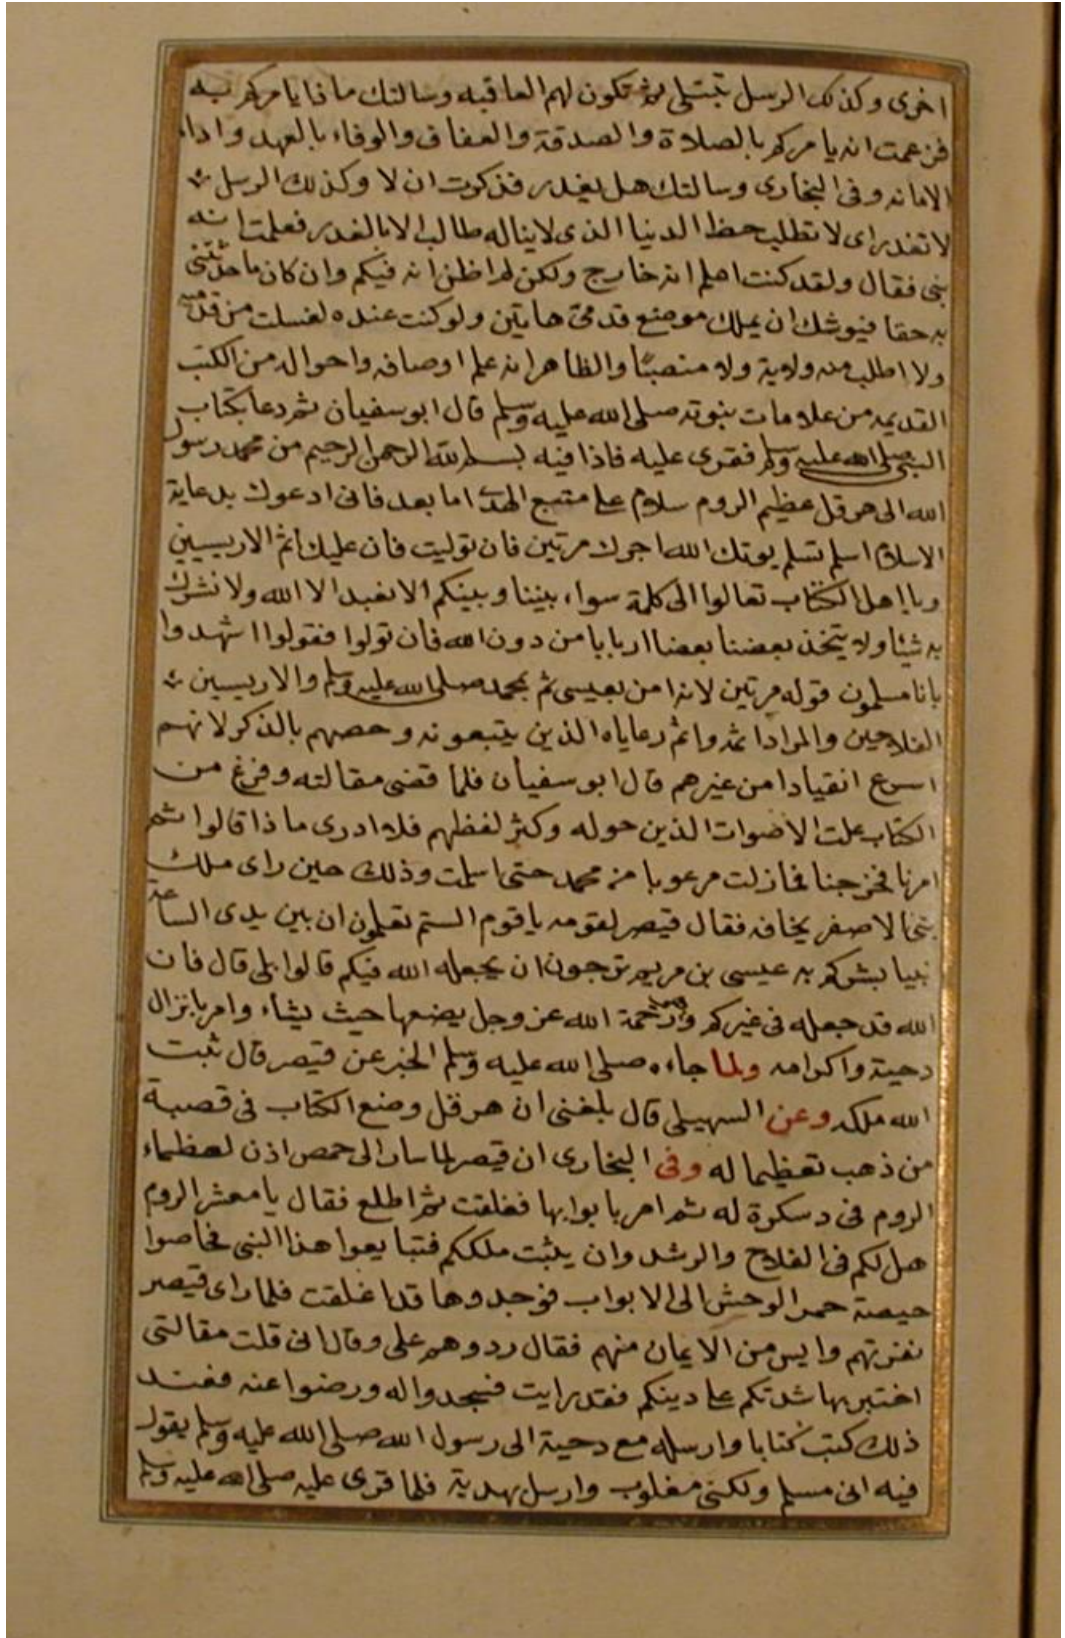 اخرى وكذلك الرسل تبتلى ثم تكون لهم العاقبه وسالتك ماذا يامركم به
فزعمت انه يامركم بالصلاة والصدقة والعفاف والوفاء بالعهد واداء
الامانه وفى البخارى وسالتك هل يغدر فذكرت ان لا وكذلك الرسل
لا تغدر اى لا تطلب حظ الدنيا الذى لا يناله طالب الا بالغدر فعلمت انه
نبى فقال ولقد كنت اعلم انه خارج ولكن لم اظن انه فيكم وان كان ما حدثتنى
به حقا فيوشك ان يملك موضع قدمى هاتين ولو كنت عنده لغسلت من قدميه
ولا اطلب منه ولاية ولا منصبًا والظاهر انه علم اوصافه واحواله من الكتب
القديمه من علامات نبوته صلى الله عليه وسلم قال ابو سفيان ثم دعا بكتاب
النبى صلى الله عليه وسلم فقرى عليه فاذا فيه بسم الله الرحمن الرحيم من محمد رسول
الله الى هرقل عظيم الروم سلام على متبع الهدى اما بعد فانى ادعوك بدعاية
الاسلام اسلم تسلم يوتك الله اجرك مرتين فان توليت فان عليك اثم الاريسيين
ويا اهل الكتاب تعالوا الى كلمة سواء بيننا وبينكم الا نعبد الا الله ولا نشرك
به شيئا ولا يتخذ بعضنا بعضا اربابا من دون الله فان تولوا فقولوا اشهدوا
بانا مسلمون قوله مرتين لانه امن بعيسى ثم بمحمد صلى الله عليه وسلم والاريسين
الفلاحين والمراد اثمه واثم رعاياه الذين يتبعونه وخصهم بالذكر لانهم
اسرع انقيادا من غيرهم قال ابو سفيان فلما قضى مقالته وفرغ من
الكتاب علت الاصوات الذين حوله وكثر لغطهم فلا ادرى ماذا قالوا ثم
امرنا فخرجنا فمازلت مرعوبا من محمد حتى اسلمت وذلك حين راى ملك
بنى الاصفر يخافه فقال قيصر لقومه يا قوم الستم تعلمون ان بين يدى الساعة
نبيا بشركم به عيسى بن مريم ترجون ان يجعله الله فيكم قالوا بلى قال فان
الله قد جعله فى غيركم ورحمة الله عز وجل يضعها حيث يشاء وامر بانزال
دحية واكرامه ولما جاءه صلى الله عليه وسلم الخبر عن قيصر قال ثبت
الله ملكه وعن السهيلى قال بلغنى ان هرقل وضع الكتاب فى قصبة
من ذهب تعظيما له وفى البخارى ان قيصر لما سار الى حمص اذن لعظماء
الروم فى دسكرة له ثم امر بابوابها فغلقت ثم اطلع فقال يا معشر الروم
هل لكم فى الفلاح والرشد وان يثبت ملككم فتبايعوا هذا النبى فحاصوا
حيصة حمر الوحش الى الابواب فوجدوها قد اغلقت فلما راى قيصر
نفرتهم وايس من الايمان منهم فقال ردوهم على وقال انى قلت مقالتى
اختبر بها شدتكم على دينكم فقد رايت فسجدوا له ورضوا عنه فعند
ذلك كتب كتابا وارسله مع دحية الى رسول الله صلى الله عليه وسلم يقول
فيه انى مسلم ولكنى مغلوب وارسل بهدية فلما قرى عليه صلى الله عليه وسلم